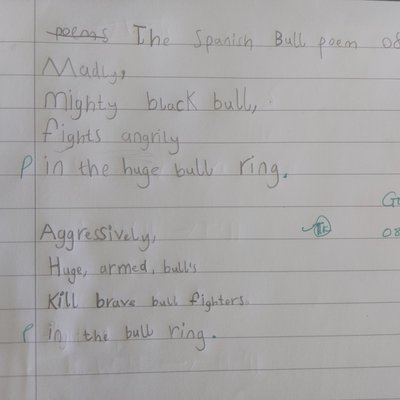 poems The Spanish Bull poem 08
Madly,
Mighty black bull,
fights angrily
P in the huge bull ring.
Aggressively,
Huge, armed, bull's
Kill brave bull fighters
P in the bull ring.
08